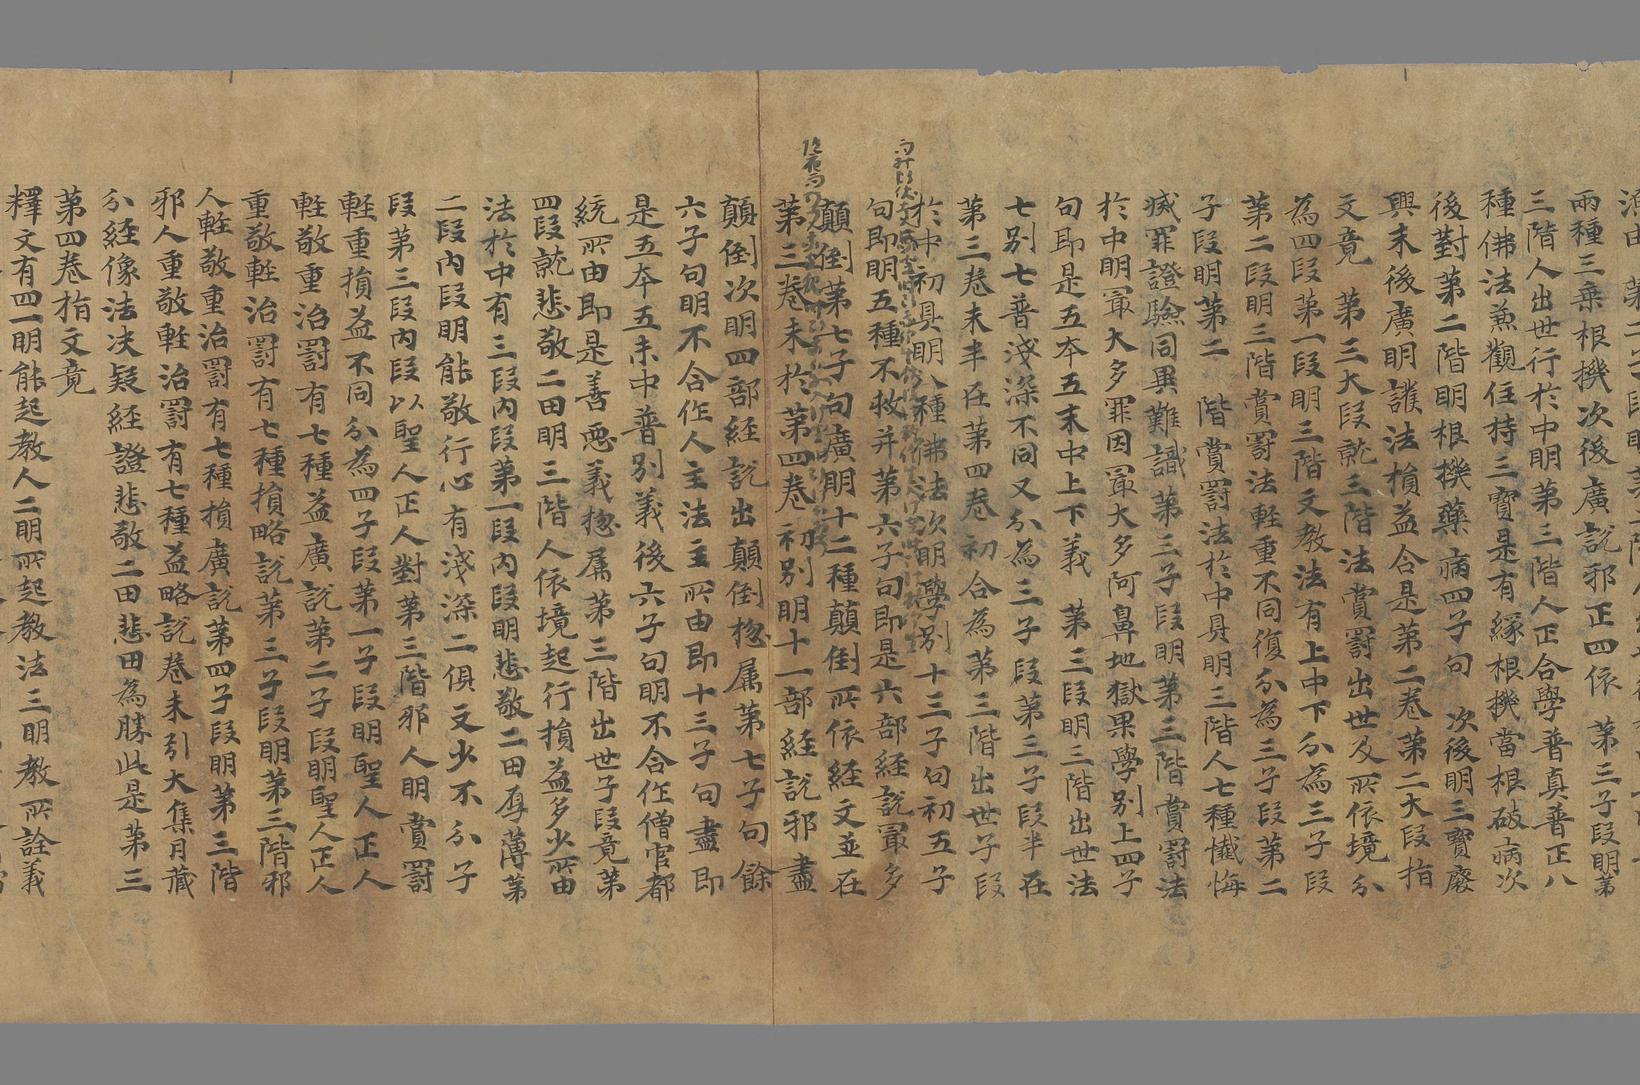 兩種三乘根機次後廣説邪正四依　第三子段明第
三階人出世行於中明第三階人正合學普真普正八
種佛法兼觀住持三寶是有緣根機當根破病次
後對第二階明根機藥病四子句　次後明三寶廢
興末後廣明謗法損益合是第二卷第二大段指
文竟　第三大段就三階法賞罰出世及所依境分
為四段第一段明三階文教法有上中下分為三子段
第二段明三階賞罰法輕重不同復分為三子段第二
子段明第二階賞罰法於中具明三階人七種懺悔
滅罪證驗同異難識第三子段明第三階賞罰法
於中明冣大多罪因冣大多阿鼻地獄果學別上四子
句即是五夲五末中上下義　第三段明三階出世法
七別七普淺深不同又分為三子段第三子段半在
第三卷末半在第四卷初合為第三階出世子段
於中初具明八種佛法次明學別十三子句初五子
句即明五種不救并第六子句即是六部經説冣多
顛倒第七子句廣明十二種顛倒所依經文並在
第三卷末於第四卷初別明十一部經説邪盡
顛倒次明四部經説出顛倒惣属第七子句餘
六子句明不合作人主法主所由即十三子句盡即
是五夲五末中普別義後六子句明不合作僧官都
統所由即是善惡義惣属第三階出世子段竟第
四段就悲敬二田明三階人依境起行損益多少所由
法於中有三段内段第一段内段明悲敬二田厚薄第
二段内段明能敬行心有淺深二俱文少不分子
段第三段内段以聖人正人對第三階邪人明賞罰
輕重損益不同分為四子段第一子段明聖人正人
輕敬重治罰有七種益廣説第二子段明聖人正人
重敬輕治罰有七種損略説第三子段明第三階邪
人輕敬重治罰有七種損廣説第四子段明第三階
邪人重敬輕治罰有七種益略説卷末引大集月藏
分經像法决疑經證悲敬二田悲田為勝此是第三
第四卷指文竟
釋文有四一明能起教人二明所起教法三明教所詮義